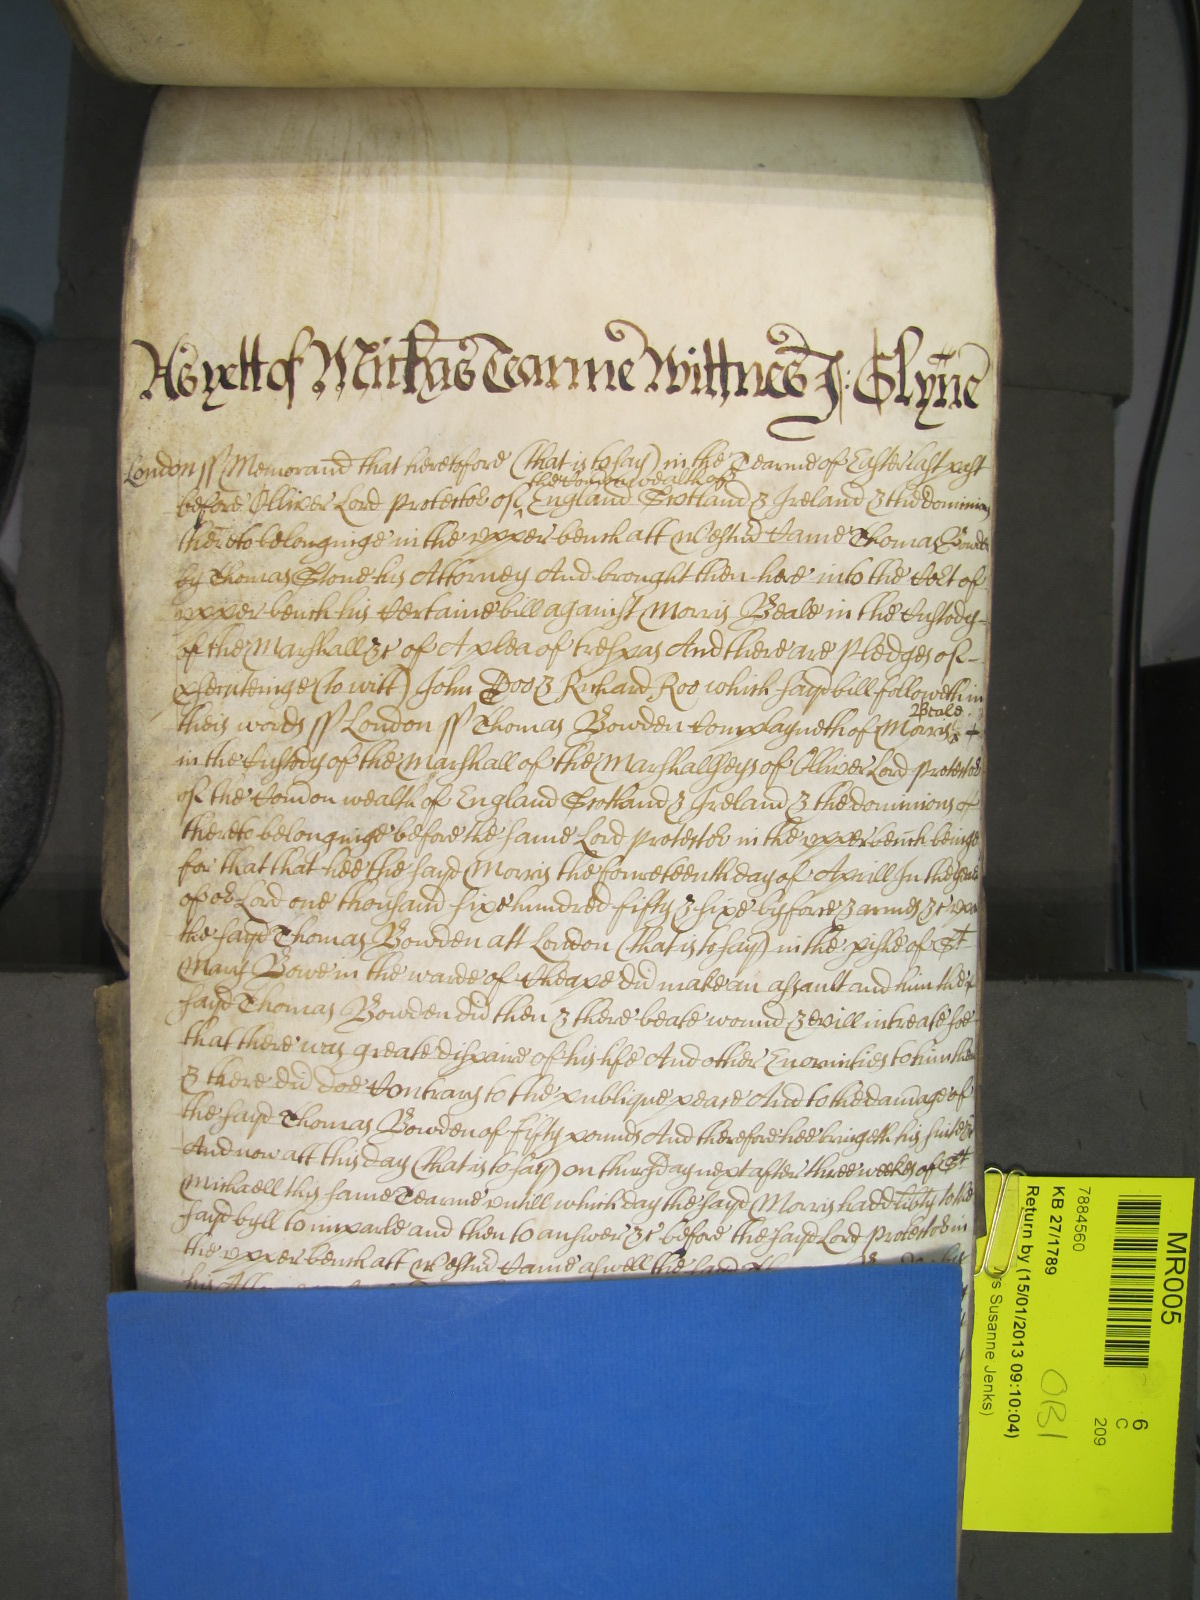 As yett of Mich'as Tearme Wittnes J: Glynne
London ss Memorand that heretofore (that is to say) in the Tearme of Easter last past
before Olliver Lord Protector of the Comon wealth of England Scotland & Ireland & the dominions
thereto belonginge in the upper bench att Westm'r Came Thomas Bowden
by Thomas Stone his Attorney And brought then here into the Co'rt of
upper bench his Certaine bill against Morris Beale in the Custody
of the Marshall &c of A plea of trespas And there are Pledges of
p'secuteinge (to witt) John Doo & Richard Roo which sayd bill followeth in
theis words ss London ss Thomas Bowden Complayneth of Morris Beale
in the Custody of the Marshall of the Marshallseys of Olliver Lord Protector
of the Comon wealth of England Scotland & Ireland & the dominions
thereto belonginge before the same Lord Protector in the upper bench beinge
for that that hee the sayd Morris the fowreteenth day of Aprill In the yeare
of o'r Lord one thousand sixe hundred fifty & sixe by force & armes &c upon
the sayd Thomas Bowden att London (that is to say) in the p'ishe of S't
Mary Bowe in the warde of Cheape did make an assault and him the
sayd Thomas Bowden did then & there beate wound & evill intreate soe
that there was greate dispaire of his life And other Enormities to him then
& there did doe Contrary to the publique peace And to the damage of
the sayd Thomas Bowden of fifty pounds And therefore hee bringeth his suite &c
And now att this day (that is to say) on thursday next after three weekes of S't
Michaell this same Tearme untill which day the sayd Morris had liberty to the
sayd byll to imparle and then to answer &c before the sayd Lord Protector in
the upper bench att Westm'r Came aswell the sayd
his
MR005
6
C
209
7884560
KB 27/1789
Return by (15/01/2013 09:10:04)
Susanne Jenks)
OB1